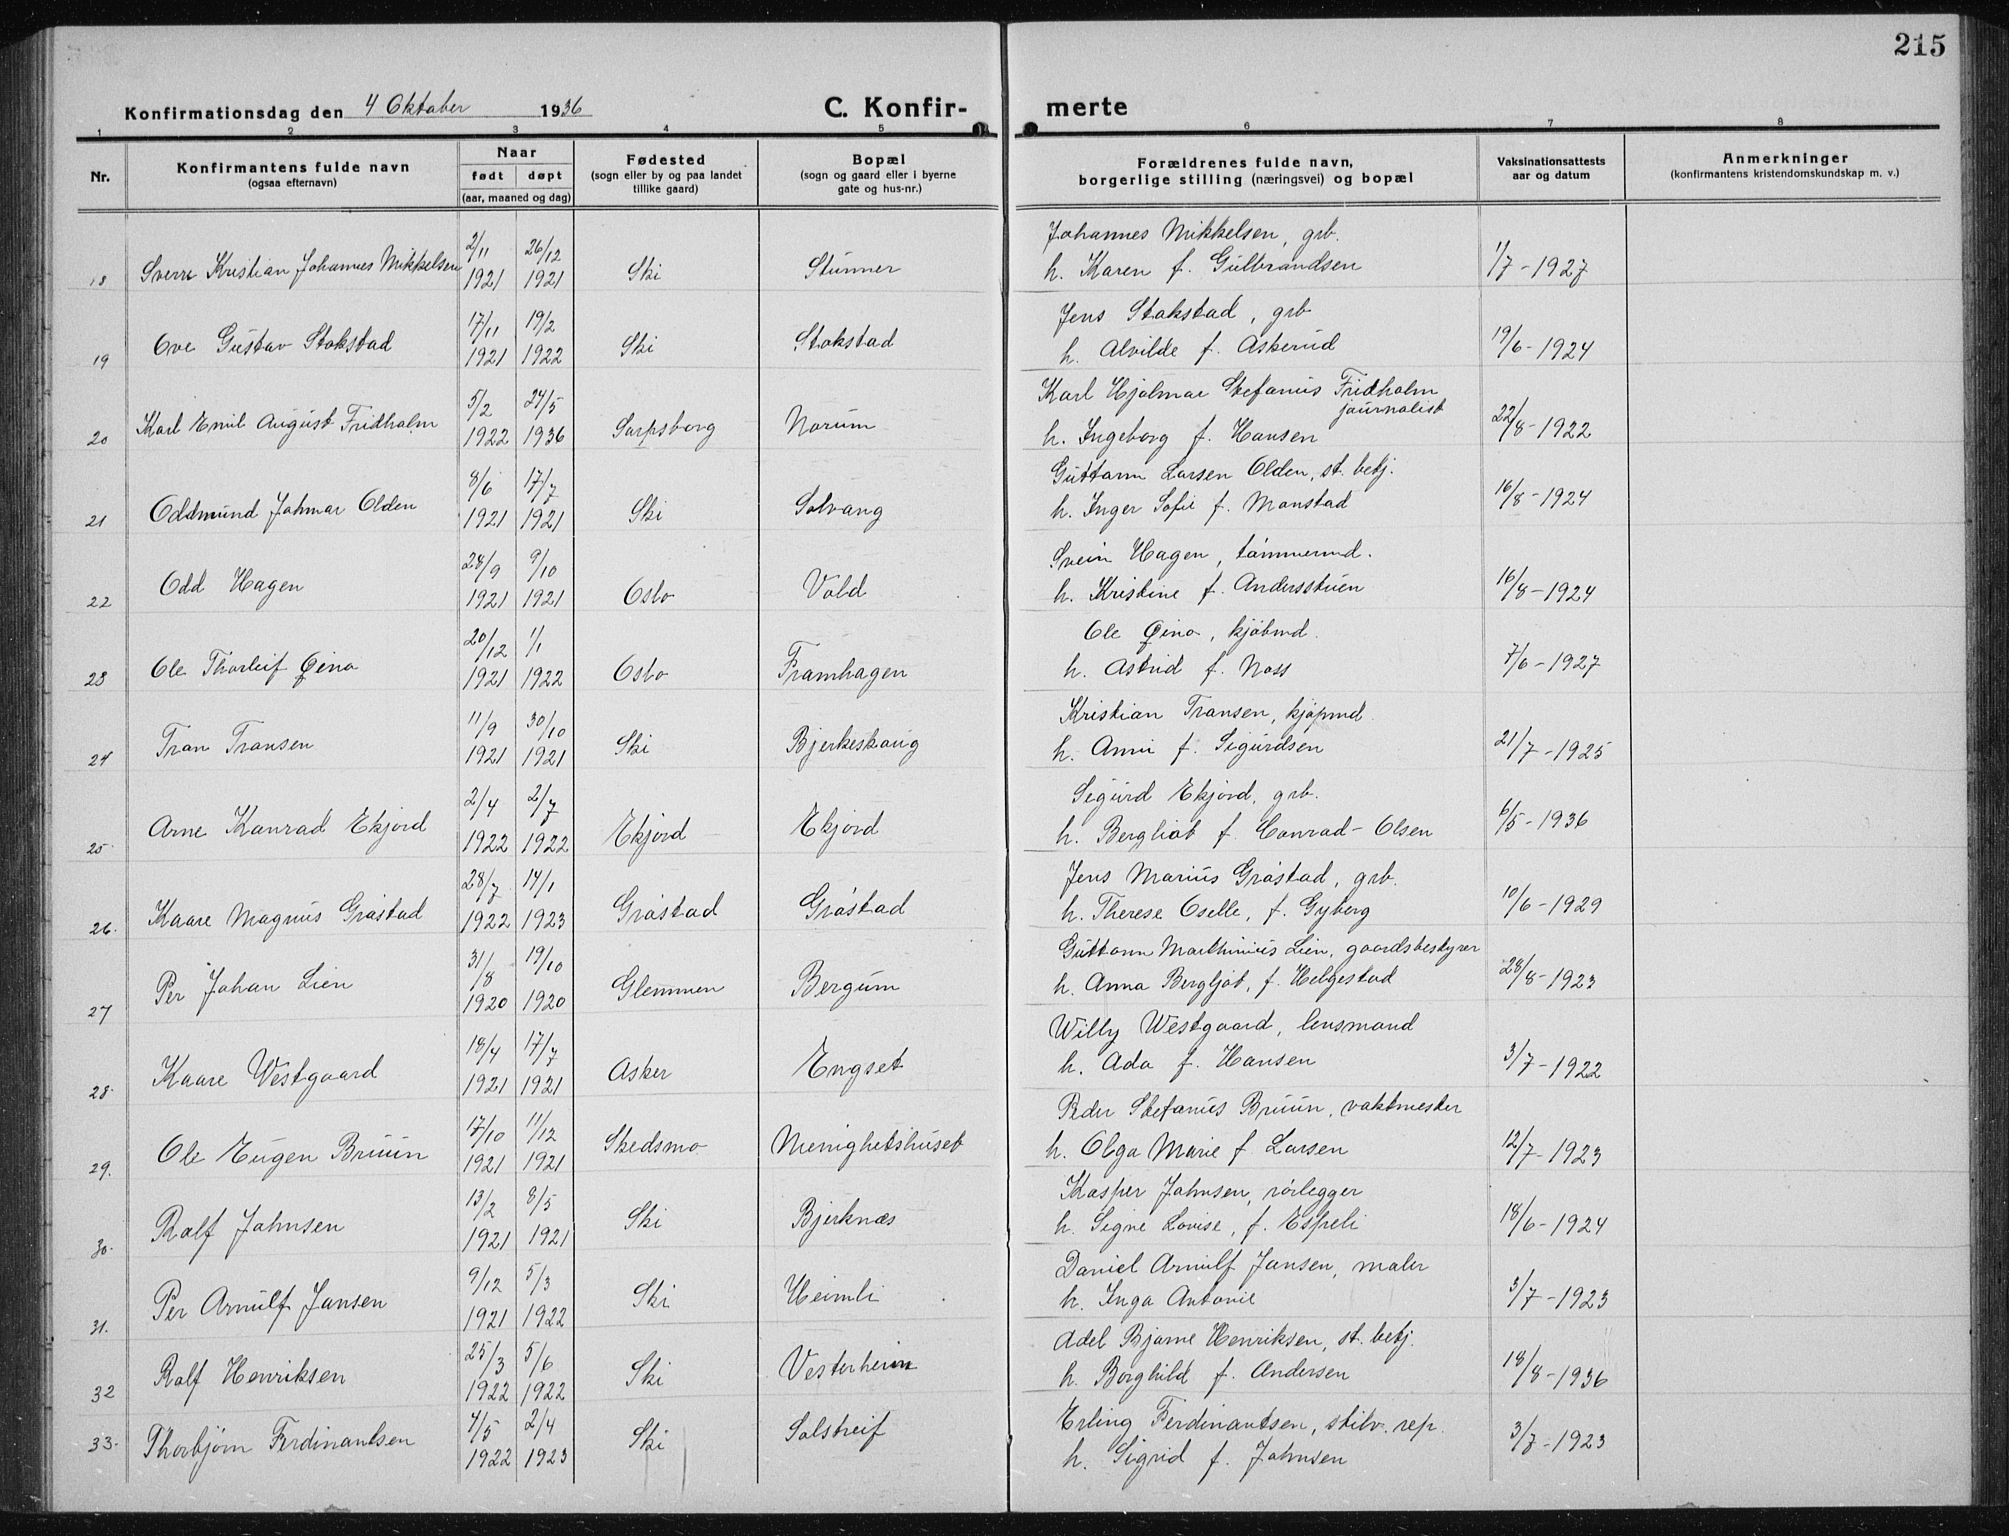 215
Konfirmationsdag den 4 Oktober 1936 C. Konfir- merte
1 2 3 4 5 6 7 8
Nr. Konfirmantens fulde navn (ogsaa efternavn) Naar født døpt (aar, maaned og dag) Fødested (sogn eller by og paa landet tillike gaard) Bopæl (sogn og gaard eller i byerne gate og hus-nr.) Forældrenes fulde navn, borgerlige stilling (næringsvei) og bopæl Vaksinationsattests aar og datum Anmerkninger (konfirmantens kristendomskundskap m. v.)
2/11 26/12 Johannes Mikkelsen, grb.
18 Sverre Kristian Johannes Mikkelsen 1921 1921 Ski Stunner h. Karen f. Gulbrandsen 1/7-1927
17/11 19/2 Jens Stokstad, grb
19 Ove Gustav Stokstad 1921 1922 Ski Stokstad h. Alvilde f. Askerud 19/6-1924
5/2 24/5 Karl Hjalmar Stefanus Fridholm journalist
20 Karl Emil August Fridholm 1922 1936 Sarpsborg Norum h. Ingeborg f. Hansen 22/8-1922
8/6 17/7 Guttorm Larsen Olden, st. betj.
21 Oddmund Johmar Olden 1921 1921 Ski Solvang h. Inger Sofie f. Monstad 16/8-1924
28/9 9/10 Svein Hagen, tømmermd.
22 Odd Hagen 1921 1921 Oslo Vold h. Kristine f. Andersstuen 16/8-1924
20/12 1/1 Ole Qino, kjøbmd.
23 Ole Thorleif Qino 1921 1922 Oslo Framhagen h. Astrid f. Noss 7/6-1927
11/9 30/10 Kristian Transen, kjøpmd.
24 Tran Transen 1921 1921 Ski Bjerkeskaug h. Anni f. Sigurdsen 21/7-1925
2/4 2/7 Sigurd Ekjord, grb.
25. Arne Konrad Ekjord 1922 1922 Ekjord Ekjord h. Bergliot f. Conrad-Olsen 6/5-1936
28/7 14/1 Jens Marius Gråstad, grb.
26. Kaare Magnus Gråstad 1922 1923 Gråstad Gråstad h. Therese Oselle, f. Gyberg 10/6-1929
31/8 19/10 Guttorm Marthinius Lien, gaardsbestyrer
27 Per Johan Lien 1920 1920 Glemmen Bergum h. Anna Bergljot, f. Helgestad 28/8-1923
18/4 17/7 Willy Westgaard, lensmand
28. Kaare Westgaard 1921 1921 Asker Engset h. Ada f. Hansen 3/7-1922
17/10 11/12 Peder Stefanus Bruun, vaktmester
29. Ole Eugen Bruun 1921 1921 Skedsmo Menighetshuset h. Olga Marie f. Larsen 12/7-1923
13/2 8/5 Kasper Johnsen, rørlegger
30. Rolf Johnsen 1921 1921 Ski Bjerknæs h. Signe Lovise, f. Espeli 18/6-1924
9/12 5/3 Daniel Arnulf Jansen, maler
31. Per Arnulf Jansen 1921 1922 Ski Heimli h. Inga Antonie 3/7-1923
25/3 5/6 Adel Bjarne Henriksen, st. betj.
32 Rolf Henriksen 1922 1922 Ski Vesterheim h. Borghild f. Andersen 18/8-1936
4/5 2/4 Erling Ferdinantsen, stilv. rep.
33. Thorbjørn Ferdinantsen 1922 1923 Ski Solstreif h. Sigrid f. Johnsen 3/7-1923